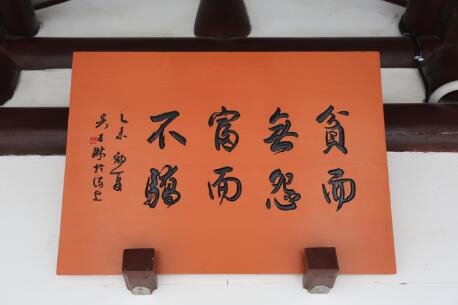 貧而
無怨
富而
不驕
乙未初夏